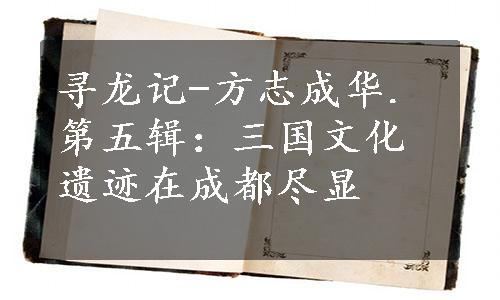 寻龙记-方志成华.
第五辑：三国文化
遗迹在成都尽显